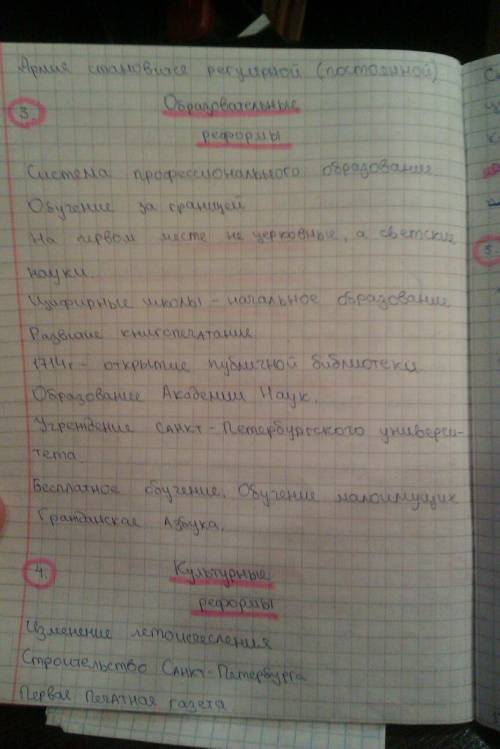 Армия становится регулярной (постоянной)
3. Образовательные
реформы
Система профессионального образования
Обучение за границей
На первом месте не церковные, а светские
науки.
Цифирные школы - начальное образование
Развитие книгопечатания
1714г - открытие публичной библиотеки
Образование Академии Наук.
Учреждение Санкт-Петербургского универси-
тета.
Бесплатное обучение. Обучение малоимущих
Гражданская Азбука.
4. Культурные
реформы
Изменение летоисчесления
Строительство Санкт-Петербурга
Первая Печатная газета
5.